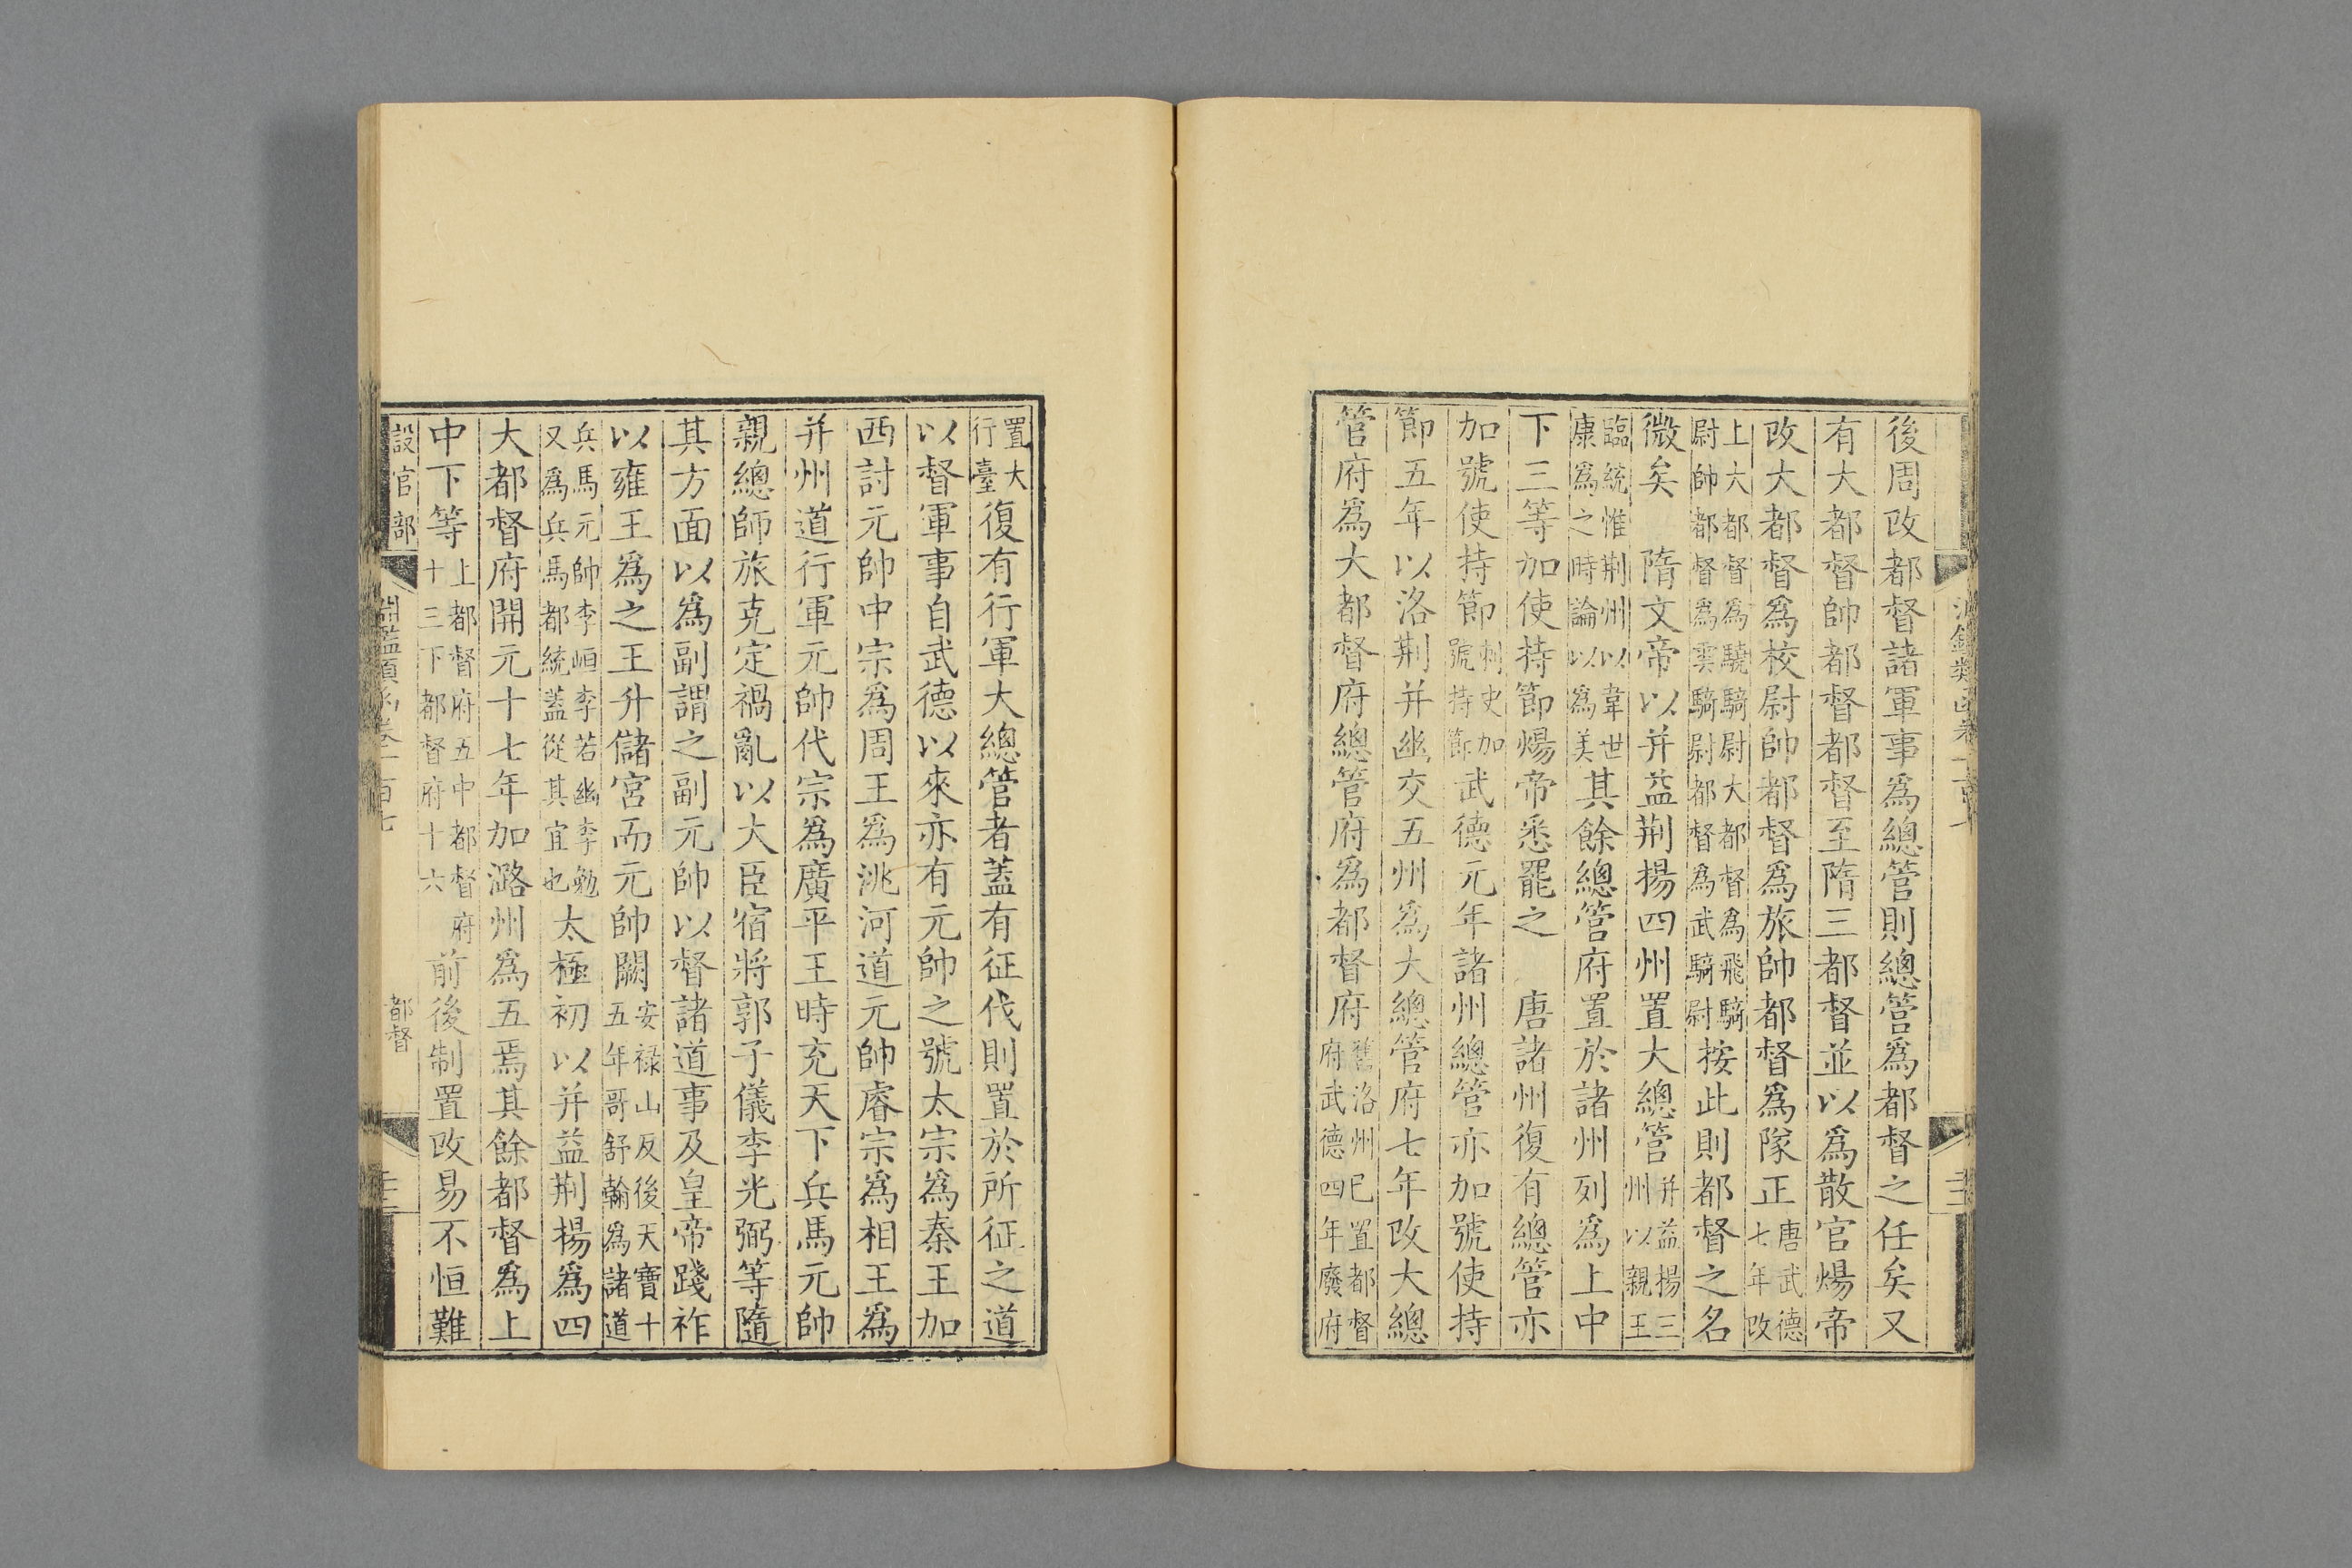 後周改都督諸軍事爲總管則總管爲都督之任矣又
有大都督帥都督都督至隋三都督並以爲散官煬帝
改大都督爲校尉帥都督爲旅帥都督爲隊正唐武德七年改
上六都督爲驍騎尉大都督爲飛騎尉帥都督爲雲騎尉都督爲武騎尉按此則都督之名
微矣 隋文帝以并益荆揚四州置大總管并益揚三州以親王
臨統惟荆州以韋世康爲之時論以爲美其餘總管府置於諸州列爲上中
下三等加使持節煬帝悉罷之 唐諸州復有總管亦
加號使持節刺史加號持節武德元年諸州總管亦加號使持
節五年以洛荆并幽交五州爲大總管府七年改大總
管府爲大都督府總管府爲都督府舊洛州已置都督府武德四年廢府
置大行臺復有行軍大總管者蓋有征伐則置於所征之道
以督軍事自武德以來亦有元帥之號太宗爲秦王加
西討元帥中宗爲周王爲洮河道元帥睿宗爲相王爲
并州道行軍元帥代宗爲廣平王時充天下兵馬元帥
親總師旅克定禍亂以大臣宿將郭子儀李光弼等隨
其方面以爲副謂之副元帥以督諸道事及皇帝踐祚
以雍王爲之王升儲宮而元帥闕安祿山反後天寶十五年哥舒翰爲諸道
兵馬元帥李峘李若幽李勉又爲兵馬都統蓋從其宜也太極初以并益荆揚爲四
大都督府開元十七年加潞州爲五焉其餘都督爲上
中下等上都督府五中都督府十三下都督府十六前後制置改易不恒難
設官部 淵鑑類函卷一百七 都督